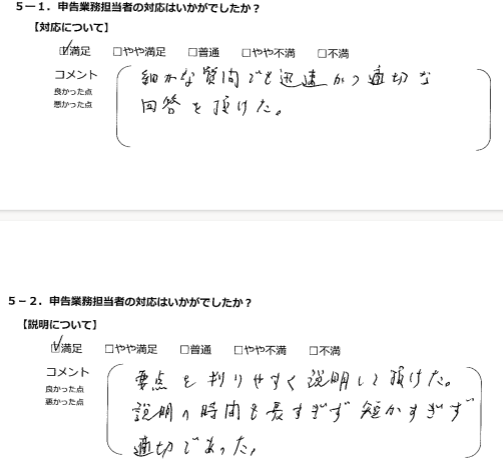 5－1．申告業務担当者の対応はいかがでしたか？
【対応について】
☑満足 □やや満足 □普通 □やや不満 □不満
コメント
良かった点
悪かった点
細かな質問でも迅速かつ適切な
回答を頂けた。
5－2．申告業務担当者の対応はいかがでしたか？
【説明について】
☑満足 □やや満足 □普通 □やや不満 □不満
コメント
良かった点
悪かった点
要点を判りやすく説明して頂けた。
説明の時間も長すぎず短かすぎず
適切であった。